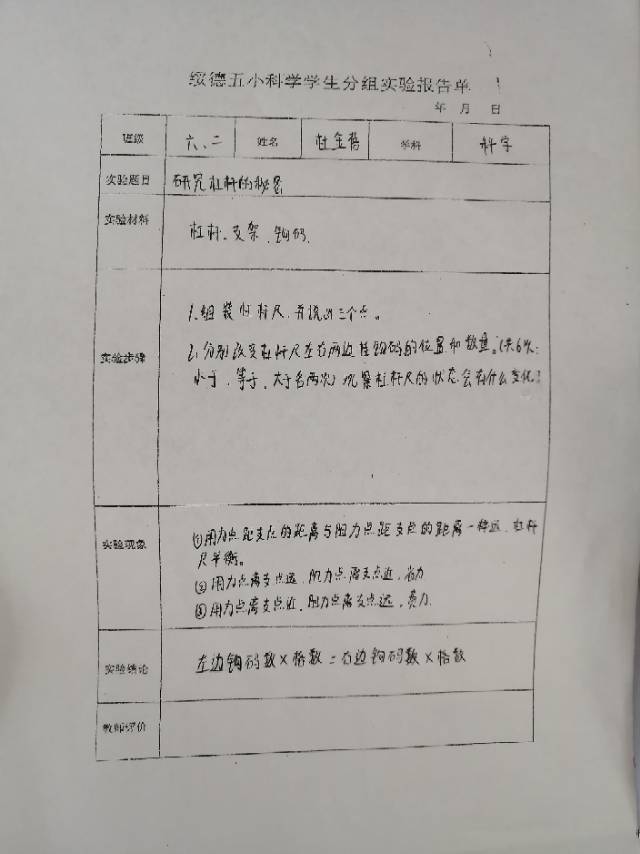 绥德五小科学学生分组实验报告单
年 月 日
班级 六、二 姓名 杜 学科 科学
实验题目 研究杠杆的秘密
实验材料 杠杆、支架、钩码。
实验步骤
1、组装杠杆尺,并说出三个点。
2、分别改变杠杆尺左右两边挂钩码的位置和数量。(共6次:
小于、等于、大于各两次)观察杠杆尺的状态会有什么变化?
实验现象
①用力点距支点的距离与阻力点距支点的距离一样远,杠杆
尺平衡。
②用力点离支点远,阻力点离支点近,省力
③用力点离支点近,阻力点离支点远,费力.
实验结论 左边钩码数×格数=右边钩码数×格数
教师评价